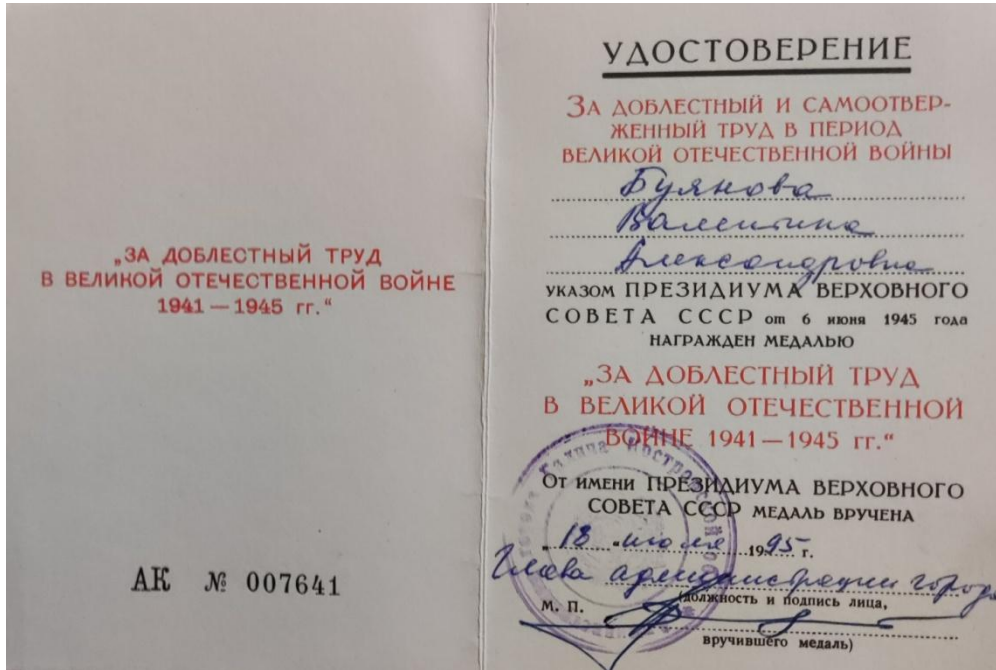 „ЗА ДОБЛЕСТНЫЙ ТРУД
В ВЕЛИКОЙ ОТЕЧЕСТВЕННОЙ ВОЙНЕ
1941 — 1945 гг.“
АК № 007641
УДОСТОВЕРЕНИЕ
ЗА ДОБЛЕСТНЫЙ И САМООТВЕР-
ЖЕННЫЙ ТРУД В ПЕРИОД
ВЕЛИКОЙ ОТЕЧЕСТВЕННОЙ ВОЙНЫ
Буянова
Валентина
Александровна
УКАЗОМ ПРЕЗИДИУМА ВЕРХОВНОГО
СОВЕТА СССР от 6 июня 1945 года
НАГРАЖДЕН МЕДАЛЬЮ
„ЗА ДОБЛЕСТНЫЙ ТРУД
В ВЕЛИКОЙ ОТЕЧЕСТВЕННОЙ
ВОЙНЕ 1941 — 1945 гг.“
ОТ ИМЕНИ ПРЕЗИДИУМА ВЕРХОВНОГО
СОВЕТА СССР МЕДАЛЬ ВРУЧЕНА
„18 “ июля 1995 г.
Глава администрации города
(должность и подпись лица,
М. П.
вручившего медаль)
Галича Костромской